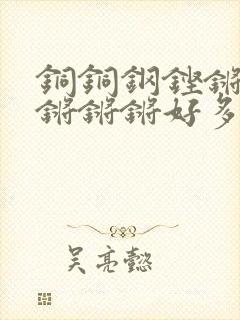 銅銅鋼鏗鏘
鏘鏘鏘好多
吴亮懿